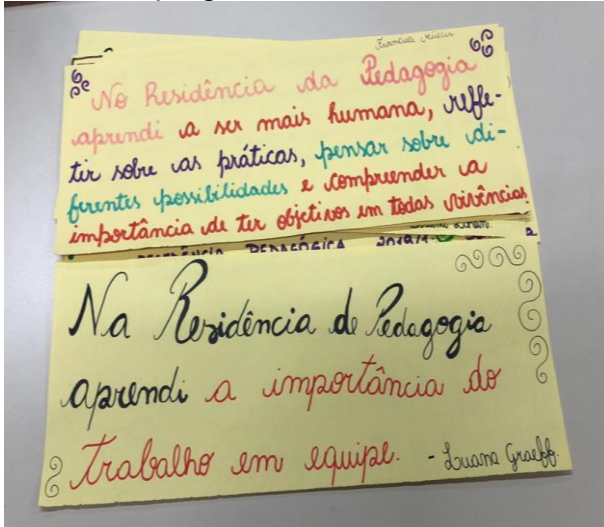 No Residência da Pedagogia
aprendi a ser mais humana, refle-
tir sobre as práticas, pensar sobre di-
ferentes possibilidades e compreender a
importância de ter objetivos em todas vivências.
PEDAGÓGICA 2019/1
Na Residência de Pedagogia
aprendi a importância do
trabalho em equipe. - Luana Graeff.